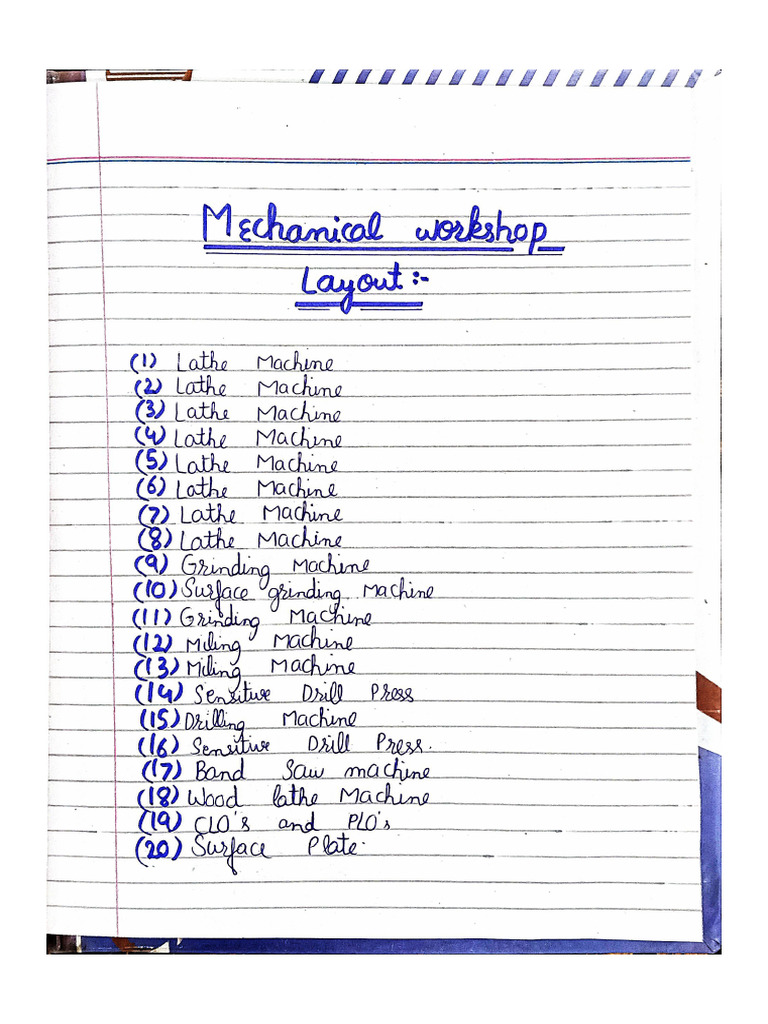 Mechanical workshop
Layout :-
(1) Lathe Machine
(2) Lathe Machine
(3) Lathe Machine
(4) Lathe Machine
(5) Lathe Machine
(6) Lathe Machine
(7) Lathe Machine
(8) Lathe Machine
(9) Grinding Machine
(10) Surface grinding Machine
(11) Grinding Machine
(12) Miling Machine
(13) Miling Machine
(14) Sensitive Drill Press
(15) Drilling Machine
(16) Sensitive Drill Press.
(17) Band Saw machine
(18) Wood lathe Machine
(19) CLO's and PLO's
(20) Surface Plate.